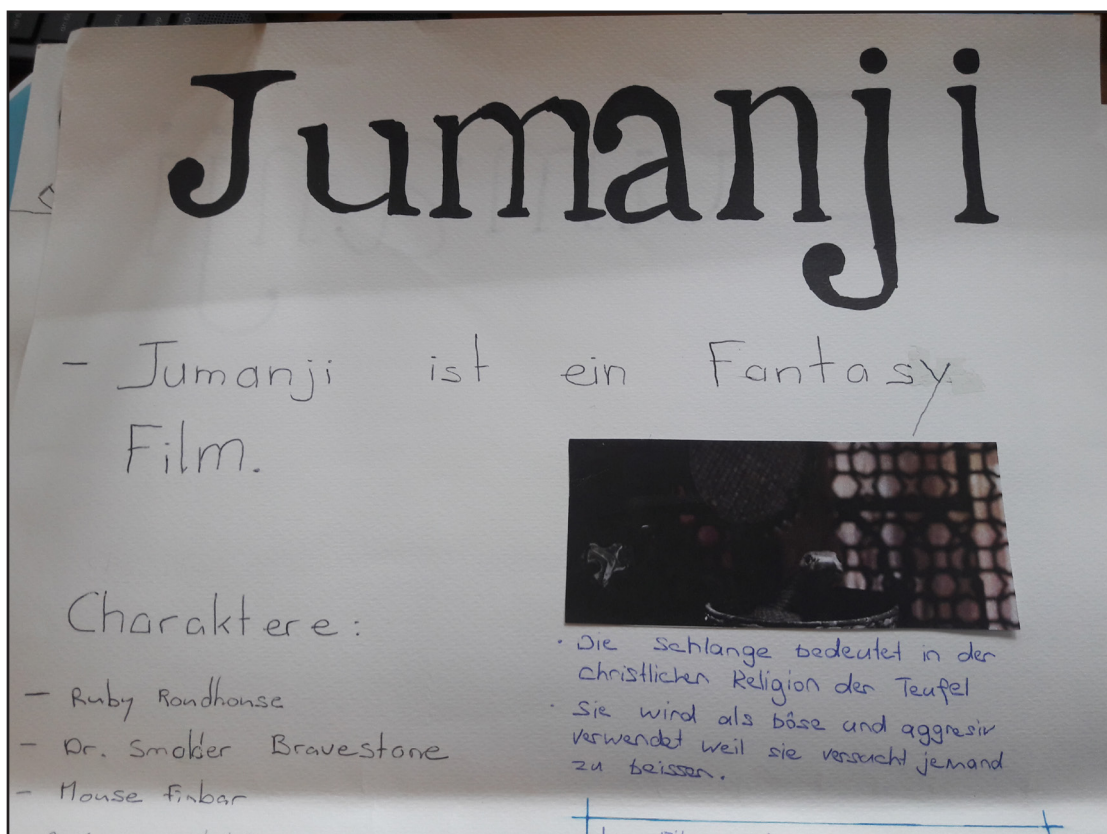 Jumanji
- Jumanji ist ein Fantasy
Film.
Charaktere:
- Ruby Rondhouse
- Dr. Smolder Bravestone
- Mouse Finbar
· Die Schlange bedeutet in der
christlichen Religion der Teufel
· Sie wird als böse und aggresiv
verwendet weil sie versucht jemand
zu beissen.